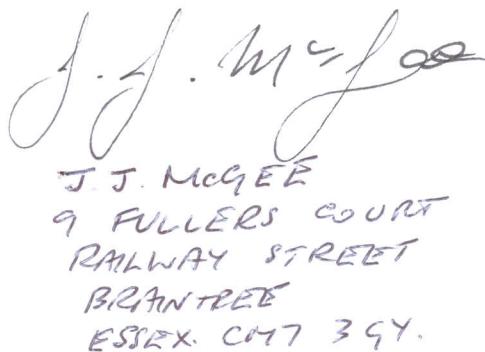 J. J. McGee
J. J. McGEE
9 FULLERS COURT
RAILWAY STREET
BRAINTREE
ESSEX. CM7 3GY.